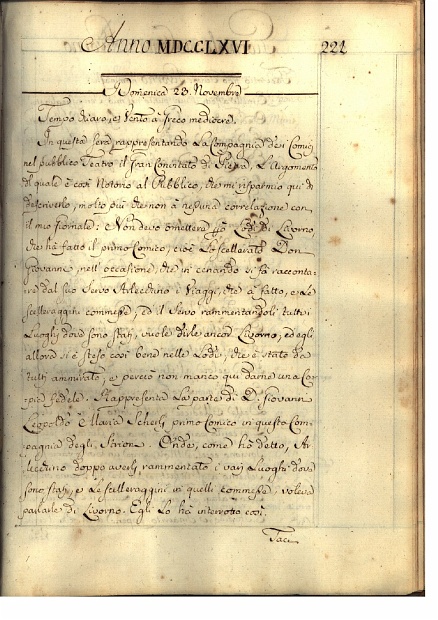 Anno MDCCLXVI 221
Domenica 23. Novembre
Tempo chiaro, e Vento a Greco mediocre.
In questa sera rappresentando La Compagnia dei Comici
nel pubblico Teatro il Gran Convitato di Pietra, L'Argomento
di quale è così Notorio al Pubblico, che mi risparmio qui di
descriverlo, molto più che non à nessuna correlazione con
il mio Giornale: Non devo omettere Lodi di Livorno
che hà fatto il primo Comico, cioè Lo scellerato Don
Giovanni, nell'occasione, che in cenando si fà racconta-
re dal suo Servo Arlecchino i Viaggi, che à fatto, e Le
scelleraggini commesse, ed il Servo rammentandoli tutti i
Luoghi dove sono stati, vuole dirle ancor Livorno, ed egli
allora si è steso così bene nelle Lodi, che è stato da
tutti ammirato, e perciò non manco qui darne una Co-
pia fedele. Rappresenta La parte di D. Giovanni
Leopoldo Maria Scherli primo Comico in questa Com-
pagnia degli Onde, come hò detto, Ar-
lecchino doppo averli rammentato i varj Luoghi dove
sono stati, e Le scelleraggini in quelli commesse, voleva
parlarle di Livorno. Egli Lo hà interrotto così.
Taci